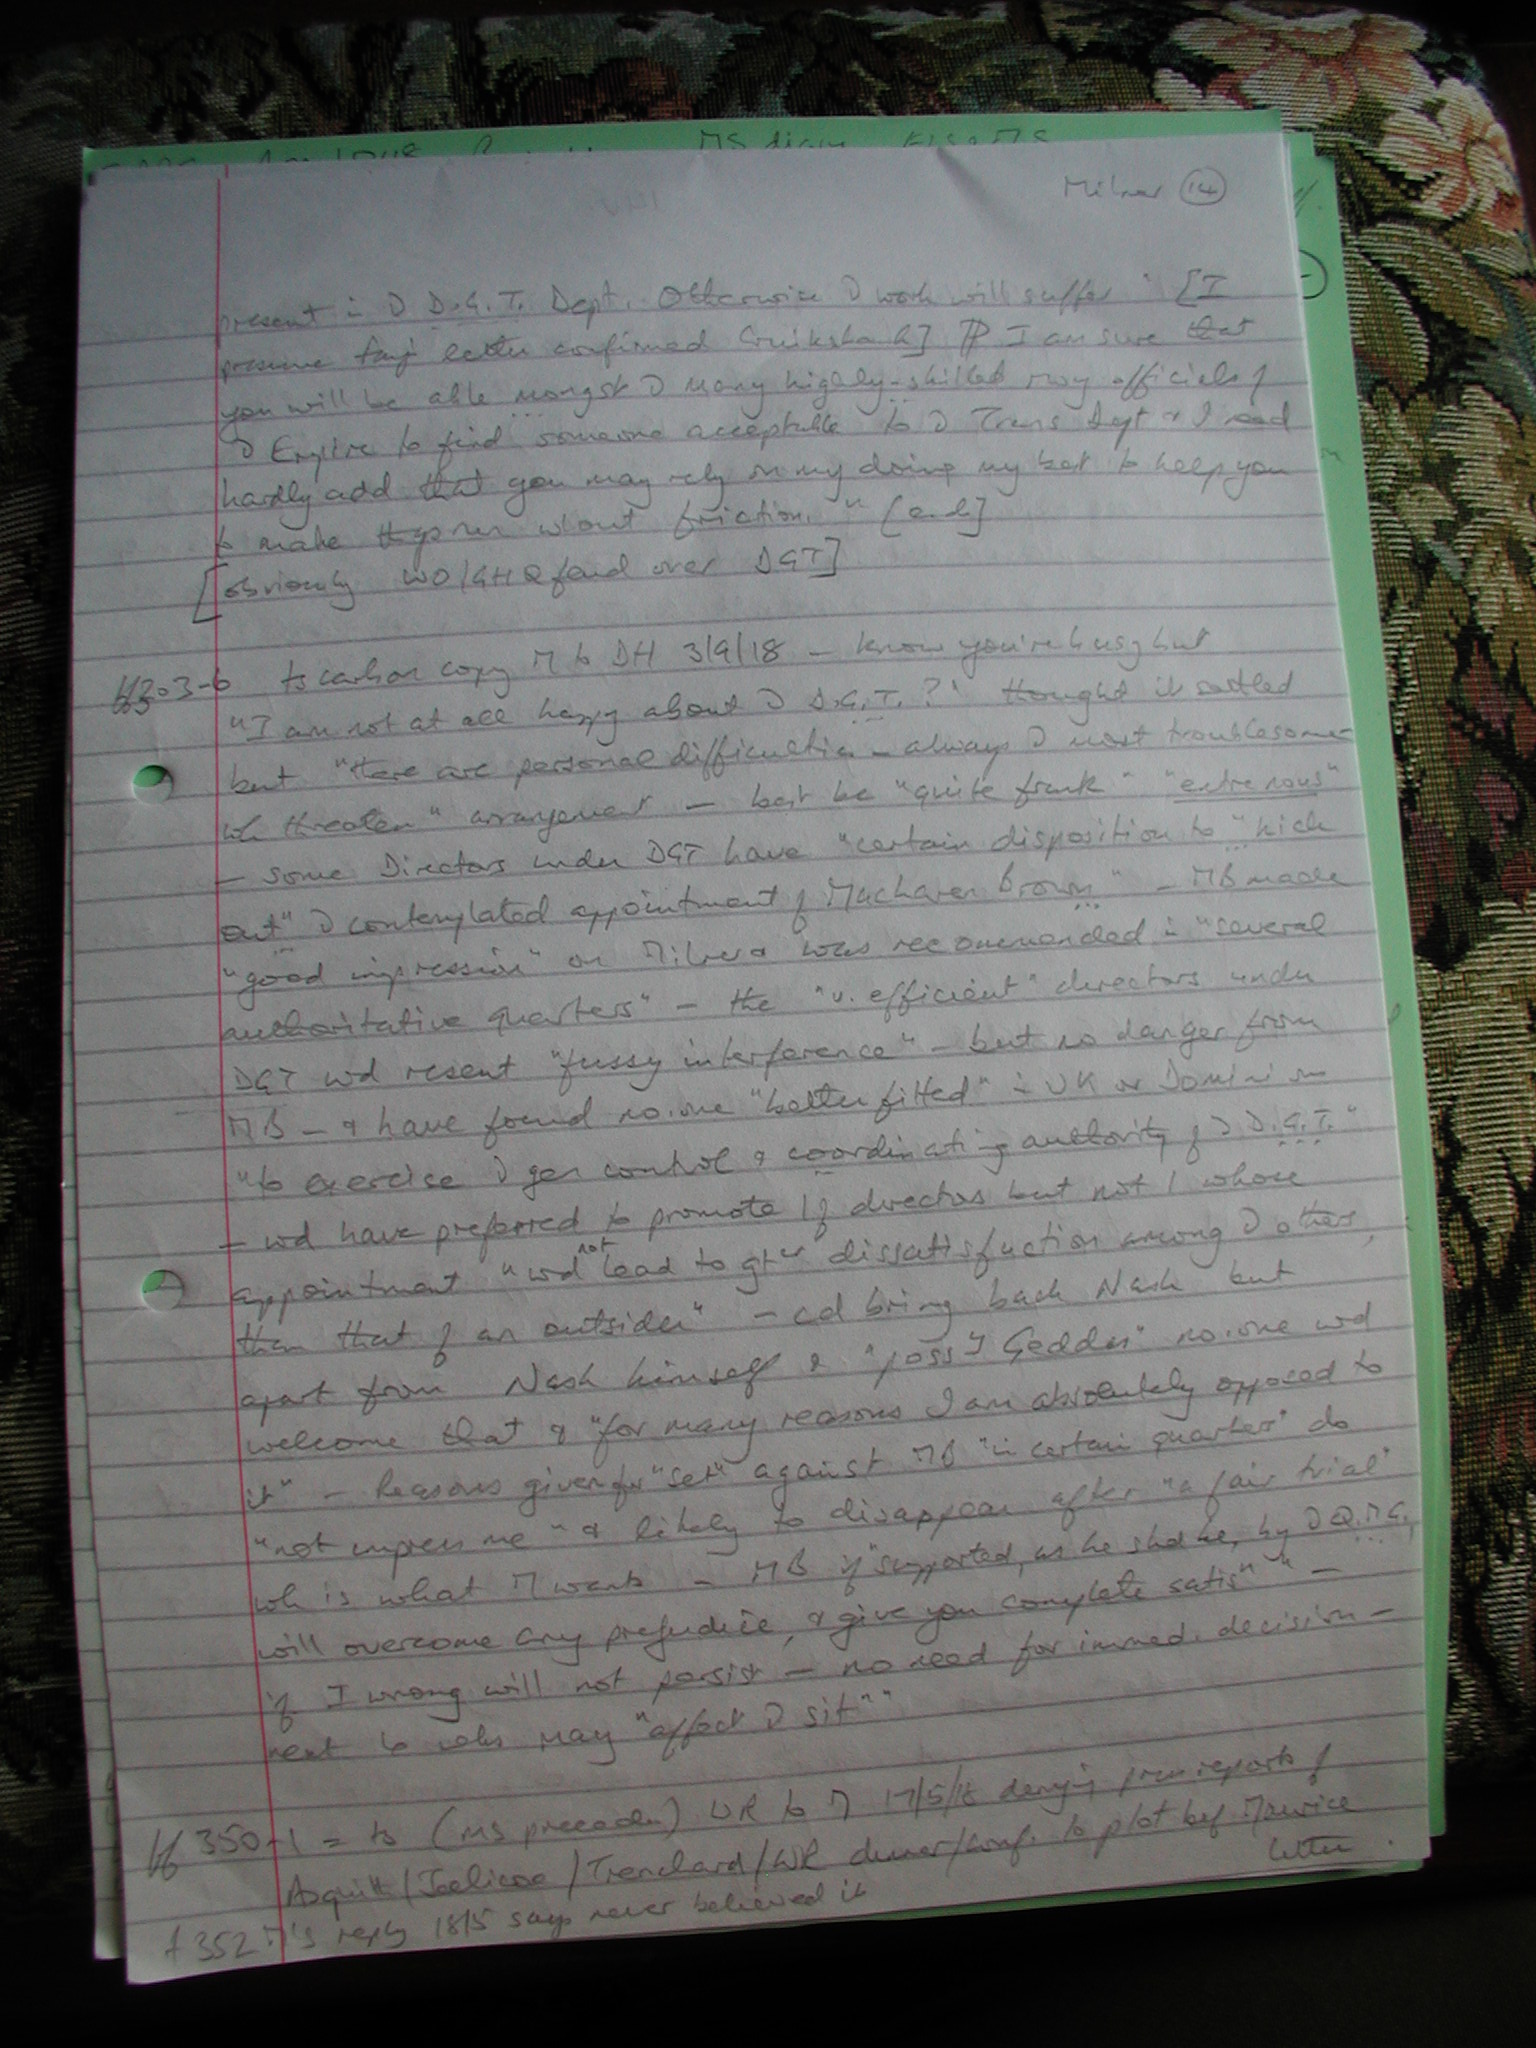 Milner 14
present in D D.G.T. Dept. Otherwise D work will suffer" [I
presume letter confirmed Cruikshank] I am sure that
you will be able mongst D many highly-skilled rwy officials of
D Empire to find someone acceptable to D Trans Dept & I need
hardly add that you may rely on my doing my best to help you
to make run w'out friction." [end]
[obviously WO/GHQ feud over DGT]
ff303-6 ts carbon copy M to DH 3/9/18 - know you're busy but
"I am not at all happy about D D.G.T.?" thought it settled
but "there are personal difficulties - always D most troublesome -
wh threaten" arrangement - best be "quite frank" "entre nous"
- some Directors under DGT have "certain disposition to "kick
out" D contemplated appointment of Maclaren Brown" - MB made
"good impression" on Milner & was recommended in "several
authoritative quarters" - the "v. efficient" directors under
DGT wd resent "fussy interference" - but no danger from
MB - & have found no.one "better fitted" in UK or Dominion
"to exercise D gen control & coordinating authority of D D.G.T."
- wd have preferred to promote 1 of directors but not 1 whose
appointment "wd not lead to gter dissatisfaction among D others,
than that of an outsider" - cd bring back Nash but
apart from Nash himself & "possy Geddes" no.one wd
welcome that & "for many reasons I am absolutely opposed to
it" - Reasons given for "set" against MB "in certain quarters" do
"not impress me" & likely to disappear after "a fair trial"
wh is what M wants - MB if "supported, as he shd be, by D Q.M.G.,
will overcome any prejudice, & give you complete satisn" -
if I wrong will not persist - no need for immed. decision -
next to wks may "affect D sit""
ff 350-1 = ts (MS preceden) WR to M 17/5/18 denying press reports of
Asquith/Jellicoe/Trenchard/WR dinner/conf. to plot bef Maurice
letter.
f 352 M's reply 18/5 says never believed it